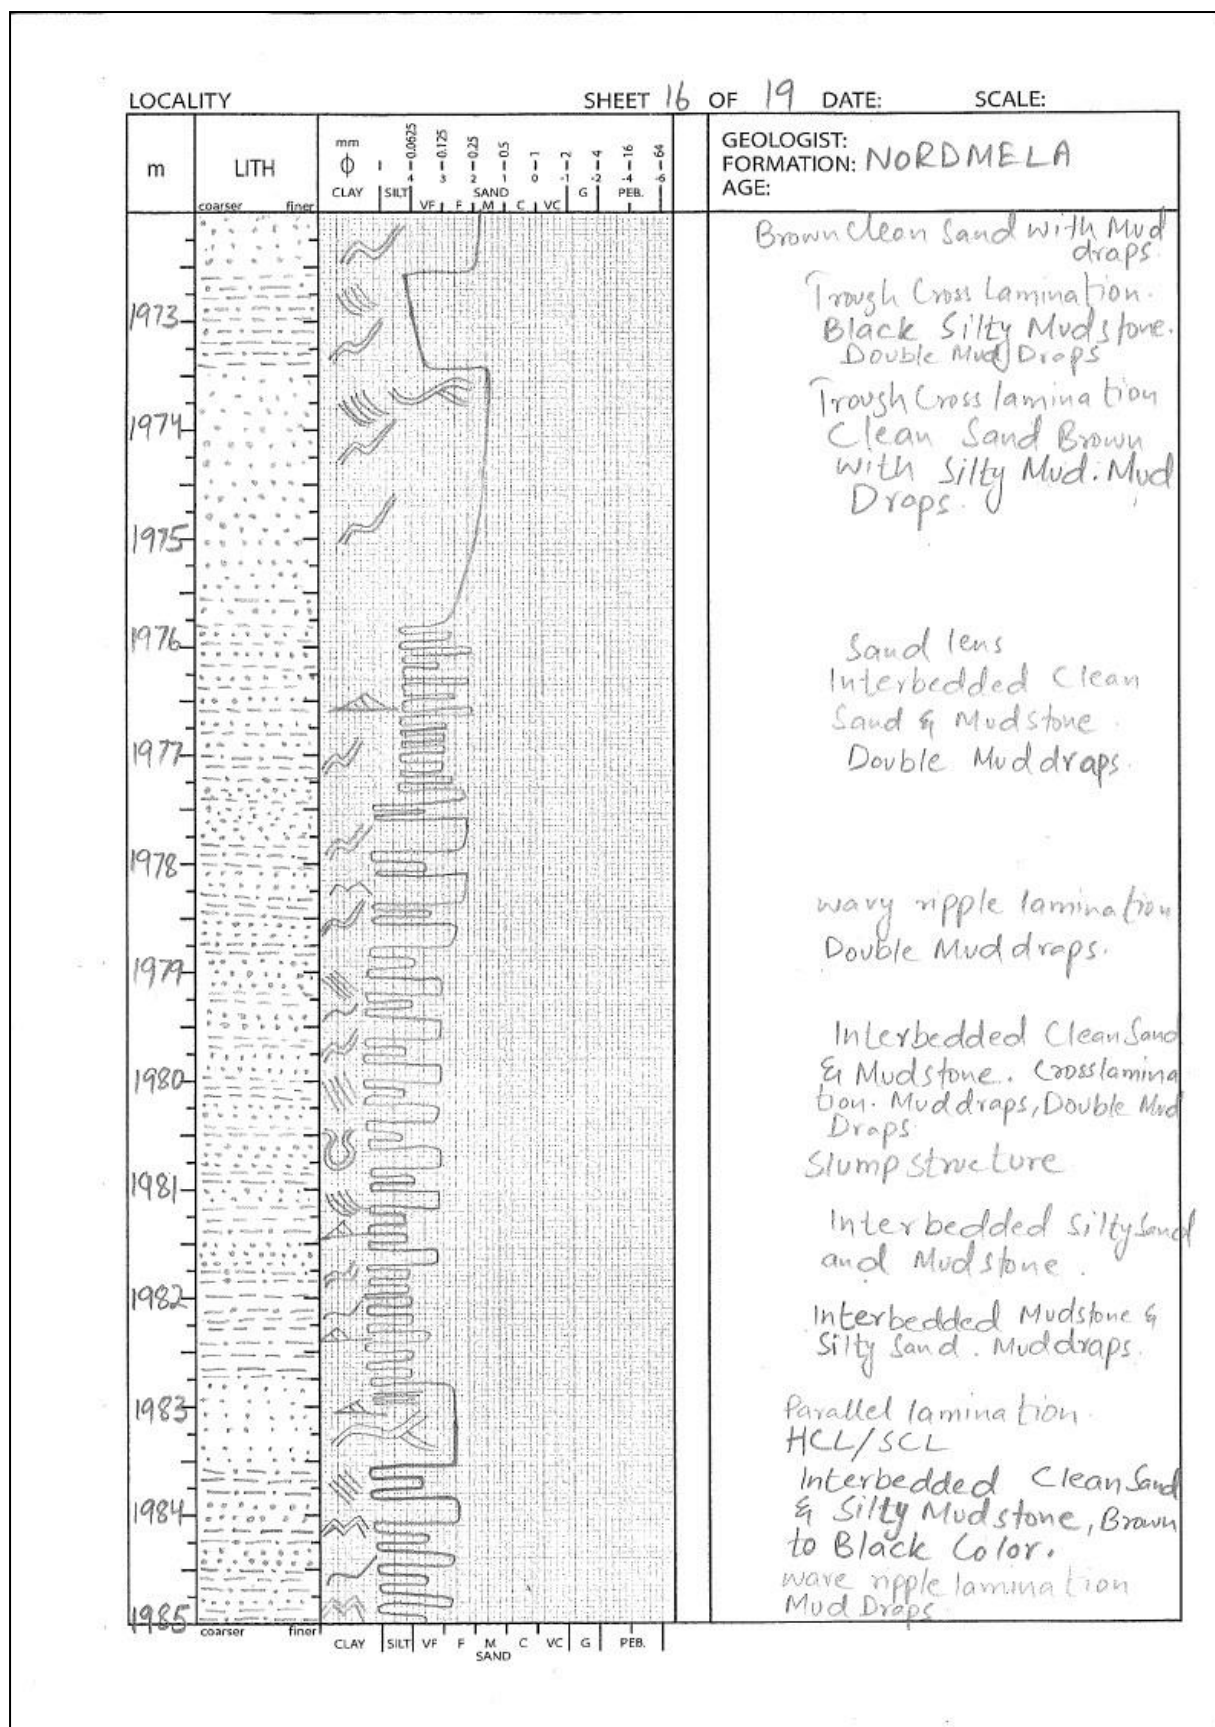 LOCALITY SHEET 16 OF 19 DATE: SCALE:
m LITH
mm
φ
0.0625 0.125 0.25 0.5 1 2 4 16 64
4 3 2 1 0 -1 -2 -4 -6
CLAY SILT SAND G PEB.
VF F M C VC
coarser finer
GEOLOGIST:
FORMATION: NORDMELA
AGE:
Brown Clean Sand with Mud
draps.
Trough Cross Lamination.
1973
Black Silty Mudstone.
Double Mud Draps
Trough Cross lamination
1974
Clean Sand Brown
with Silty Mud. Mud
Draps.
1975
1976
Sand lens
Interbedded Clean
Sand & Mudstone.
1977
Double Mud draps.
1978
wavy ripple lamination
Double Mud draps.
1979
Interbedded Clean Sand
1980
& Mudstone. Crosslamina
tion. Mud draps, Double Mud
Draps
Slump structure
1981
Interbedded Silty Sand
and Mudstone.
1982
Interbedded Mudstone &
Silty Sand. Mud draps.
1983
Parallel lamination.
HCL/SCL
Interbedded Clean Sand
1984
& Silty Mudstone, Brown
to Black Color.
wave ripple lamination
Mud Draps
1985
coarser finer
CLAY SILT VF F M C VC G PEB.
SAND